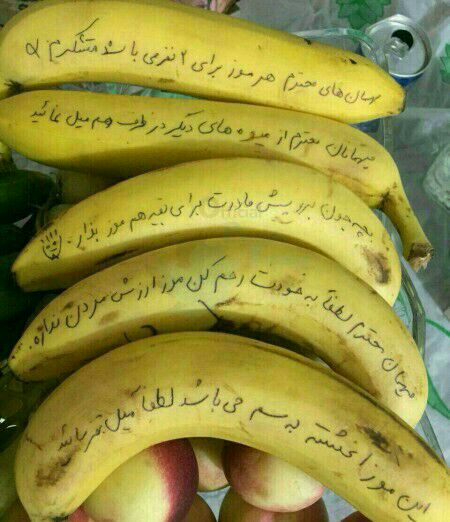 مهمان های محترم هر موز برای ۲ نفر می باشد متشکرم
میهمانان محترم از میوه های دیگر در ظرف هم میل نمائید
بچه جون برو پیش مادرت برای بقیه هم موز بذار
میهمان محترم لطفاً به خودت رحم کن موز ارزش مردن نداره.
این موز آغشته به سم می باشد لطفا میل نفرمائید